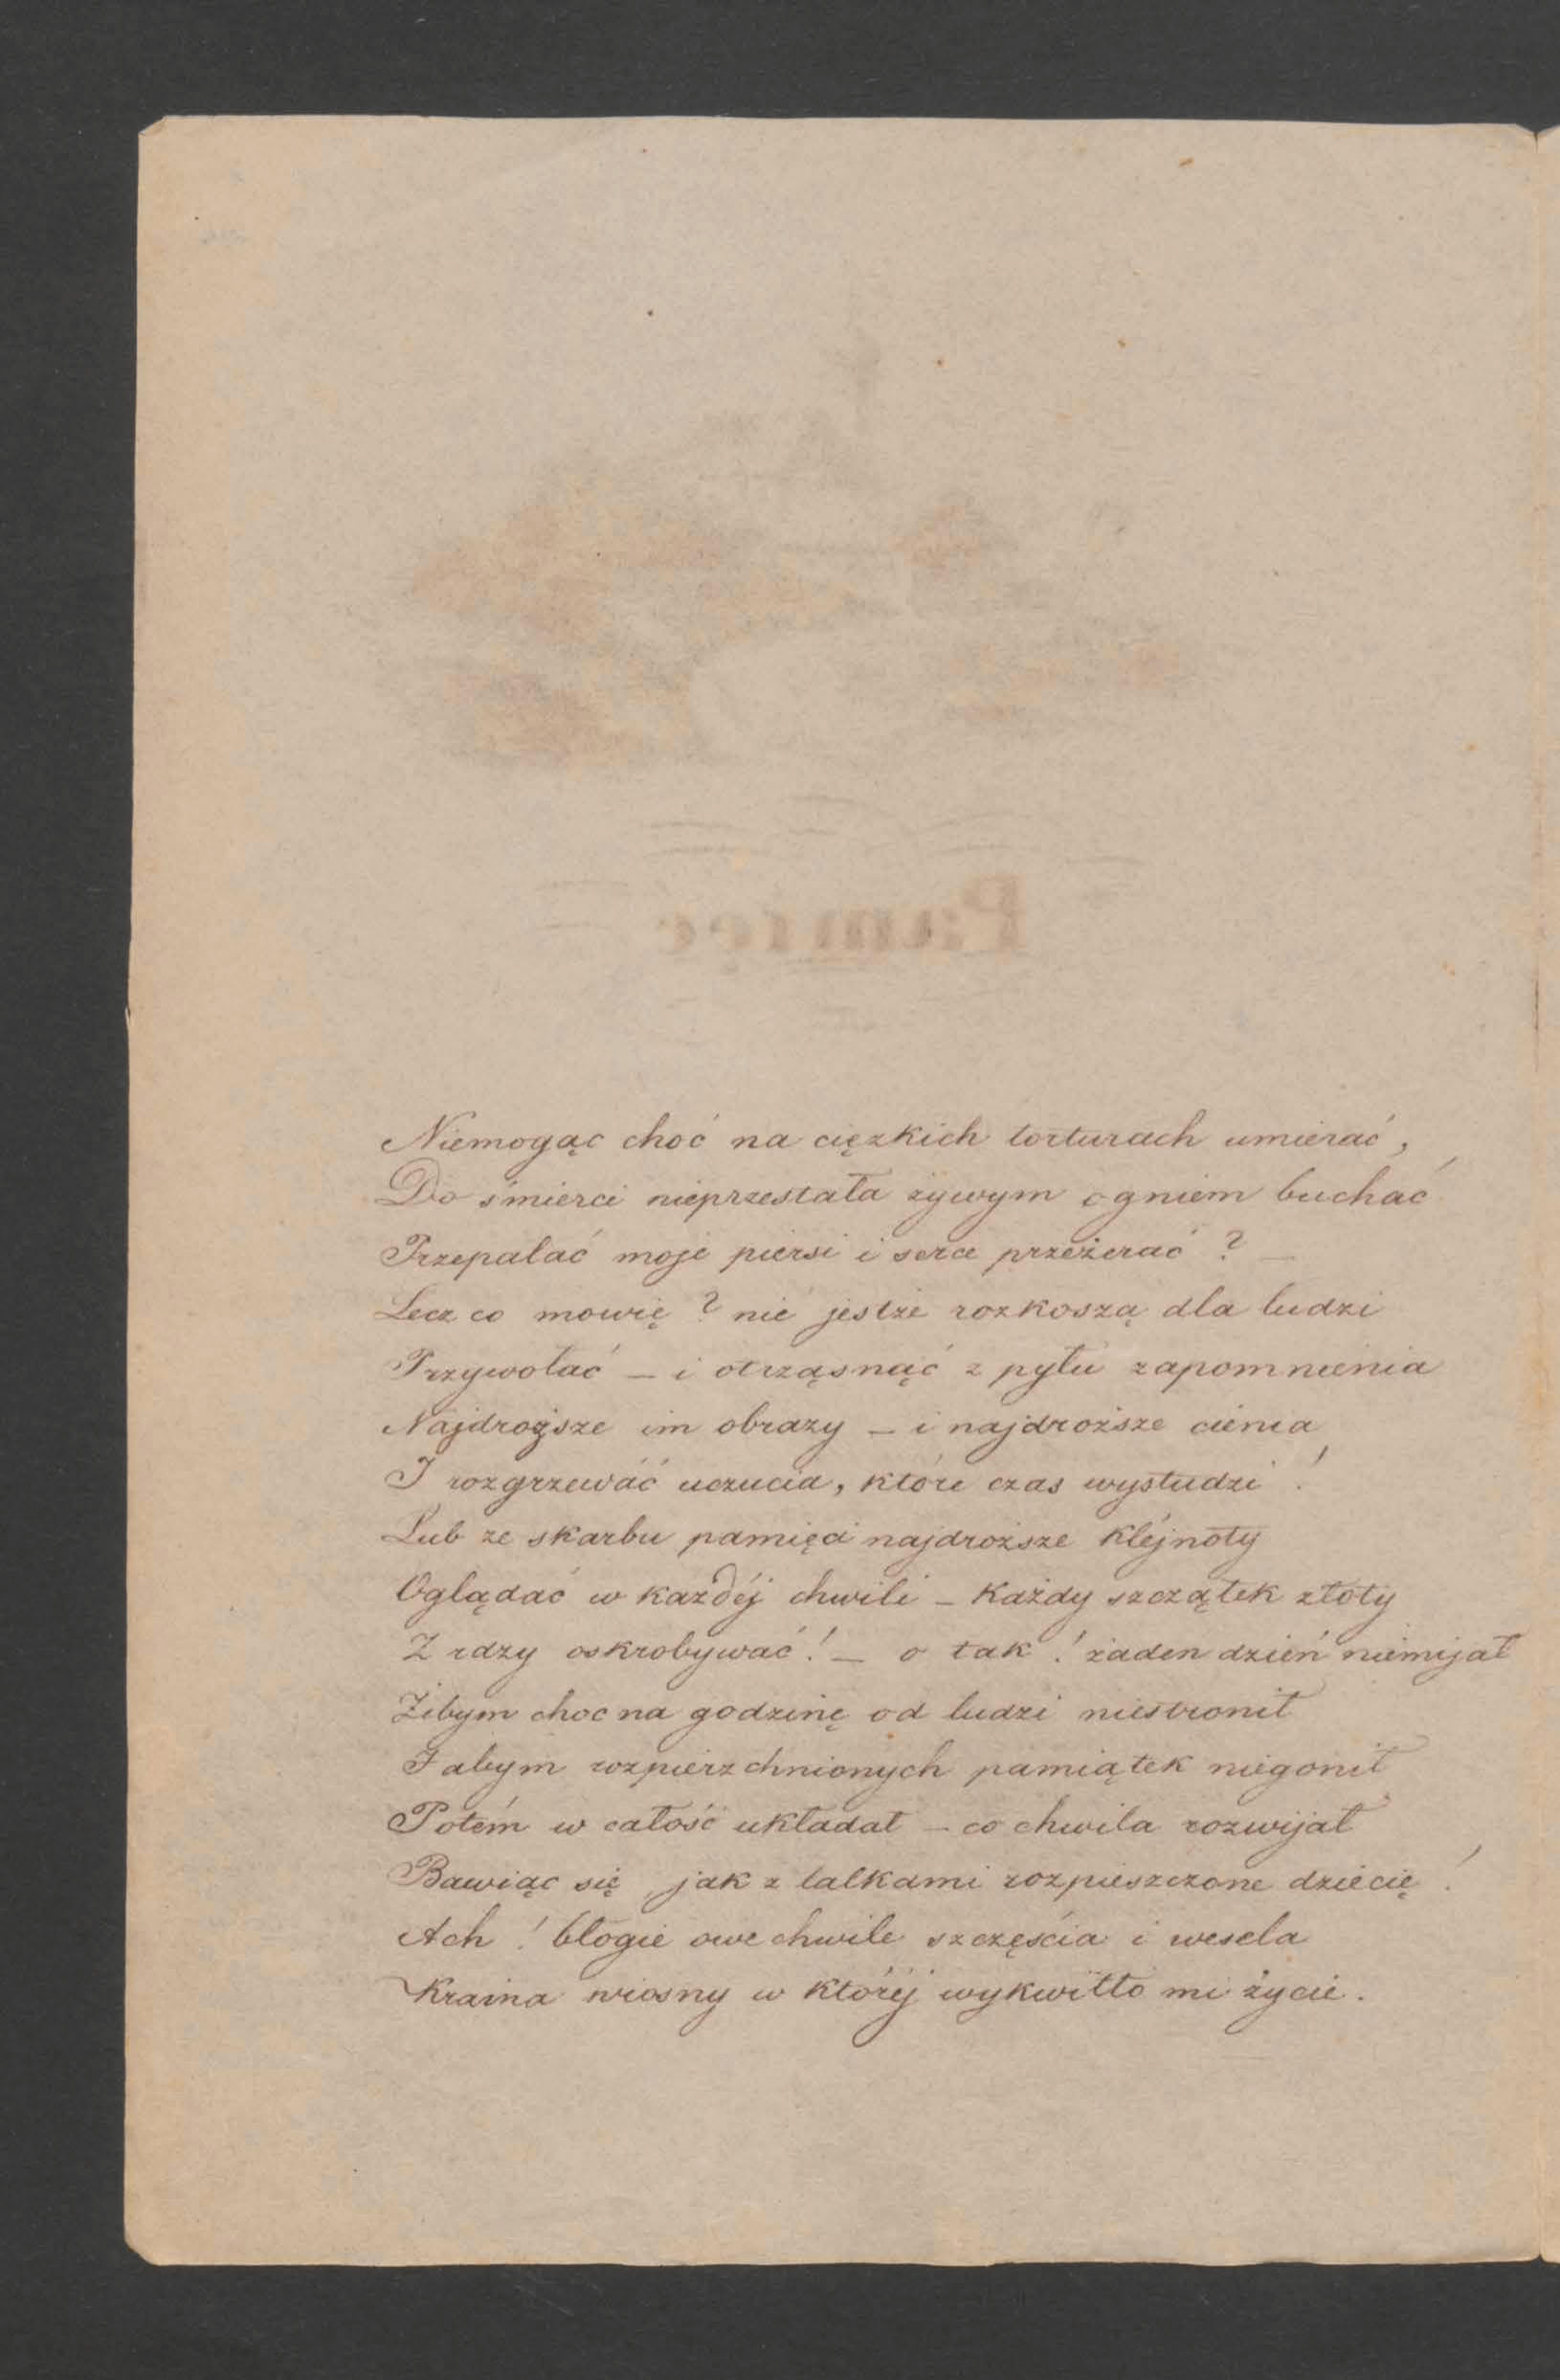 Niemogąc choć na ciężkich torturach umierać,
Do śmierci nieprzestała żywym ogniem buchać
Przepalać moje piersi i serce przeżerać? —
Lecz co mowię? nie jestże rozkoszą dla ludzi
Przywołać — i otrząsnąć z pyłu zapomnienia
Najdroższe im obrazy — i najdroższe cienia
I rozgrzewáć uczucia, które czas wystudzi!
Lub ze skarbu pamięci najdroższe klejnoty
Oglądać w każdéj chwili — każdy szczątek złoty
Z rdzy oskrobywać! — o tak! żaden dzień niemijał
Żebym choc na godzinę od ludzi niestronił
I abym rozpierzchnionych pamiątek niegonił
Potém w całość układał — co chwila rozwijał
Bawiąc się jak z lalkami rozpieszczone dziecię!
Ach! błogie owe chwile szczęścia i wesela
Kraina wiosny w któréj wykwitło mi życie.